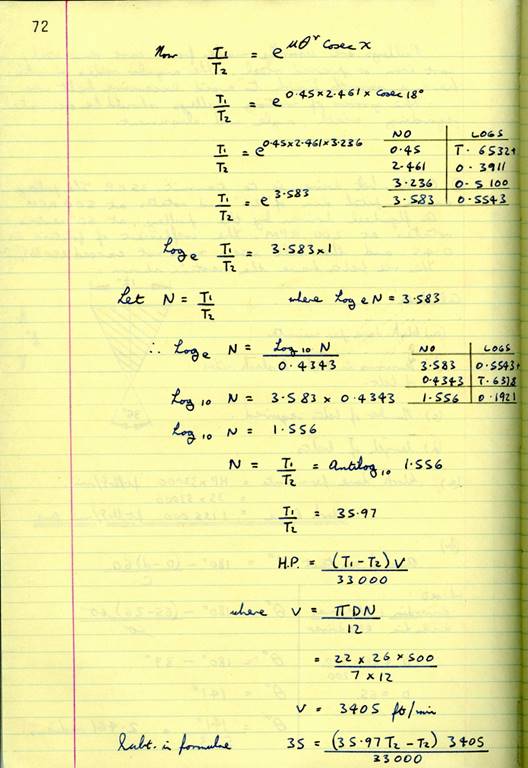 72
Now T1/T2 = e^μθʳ Cosec x
T1/T2 = e^0·45×2·461× cosec 18°
T1/T2 = e^0·45×2·461×3·236
NO LOGS
0·45 T·6532+
2·461 0·3911
3·236 0·5100
3·583 0·5543
T1/T2 = e^3·583
Log e T1/T2 = 3·583×1
Let N = T1/T2 where Log e N = 3·583
∴ Log e N = Log 10 N / 0·4343
NO LOGS
3·583 0·5543+
0·4343 T·6378
1·556 0·1921
Log 10 N = 3·583 × 0·4343
Log 10 N = 1·556
N = T1/T2 = Antilog 10 1·556
T1/T2 = 35·97
H.P. = (T1-T2) V / 33000
where V = πDN / 12
= 22 × 26 × 500 / 7 × 12
V = 3405 ft/min
Subt. in formulae 35 = (35·97T2 - T2) 3405 / 33000